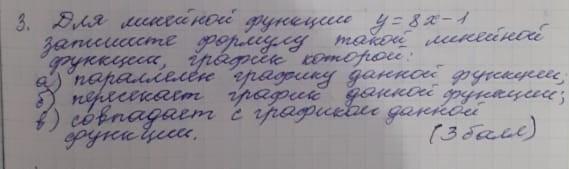 3. Для линейной функции y = 8x - 1
запишите формулу такой линейной
функции, график которой:
а) параллелен графику данной функции;
б) пересекает график данной функции;
в) совпадает с графиком данной
функции. (3 балл)